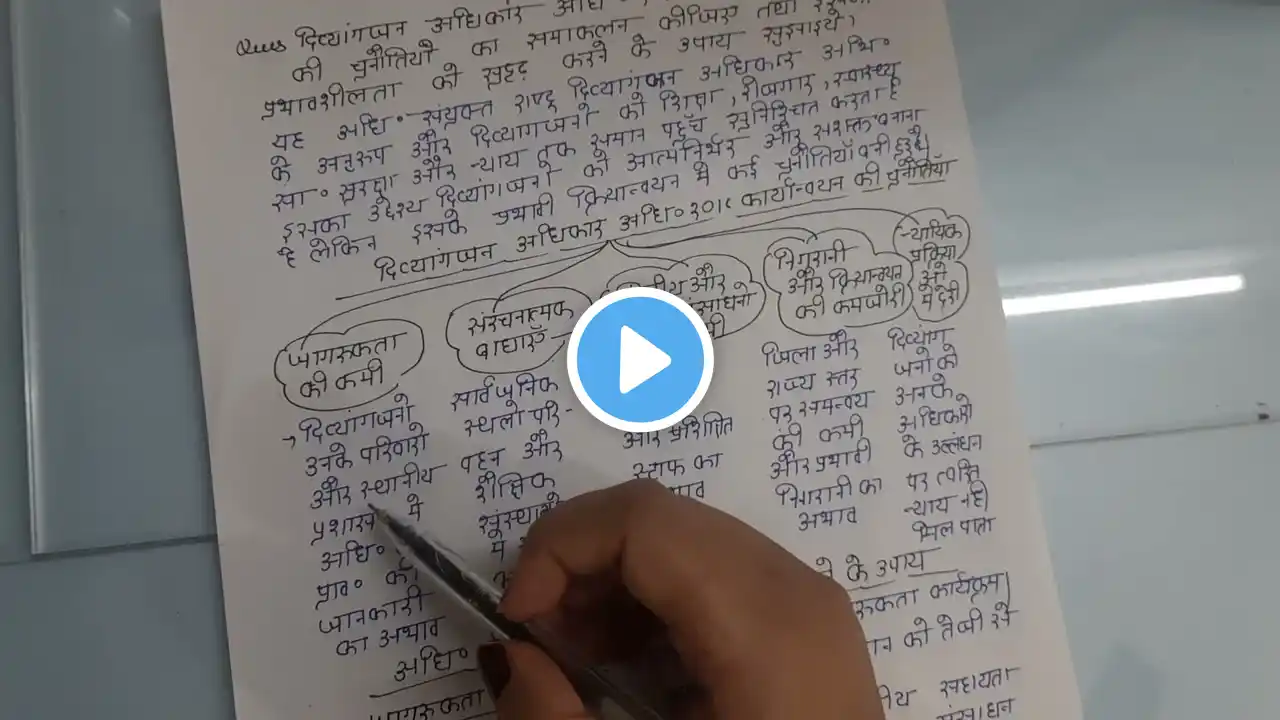 Ques दिव्यांगजन अधिकार अधि॰
की चुनौतियों का समाकलन कीजिए तथा
प्रभावशीलता को सुदृढ़ करने के उपाय सुझाइये,
यह अधि॰ संयुक्त राष्ट्र दिव्यांगजन अधिकार अभि॰
के अनुरूप और दिव्यांगजनो को शिक्षा, रोजगार, स्वास्थ्य
सा॰ सुरक्षा और न्याय तक समान पहुँच सुनिश्चित करता है
इसका उद्देश्य दिव्यांगजनो को आत्मनिर्भर और सशक्त बनाना
है लेकिन इसके प्रभावी क्रियान्वयन में कई चुनौतियाँ बनी हुई है
दिव्यांगजन अधिकार अधि॰ 201६ कार्यान्वयन की चुनौतियाँ
जागरुकता
की कमी
→ दिव्यांगजनो
उनके परिवारो
और स्थानीय
में
अधि॰
प्राव॰ की
जानकारी
का अभाव
संरचनात्मक
बाधाएँ
सार्वजनिक
स्थलो परि-
वहन और
शैक्षिक
में
और
संसाधनो
और प्रशिक्षित
स्टाफ का
निगरानी
और क्रियान्वयन
की कमजोरी
जिला और
राज्य स्तर
पर समन्वय
की कमी
और प्रभावी
निगरानी का
अभाव
न्यायिक
प्रक्रिया
ओ
में देरी
दिव्यांग
जनो को
उनके
अधिकारो
के उल्लंघन
पर त्वरित
न्याय नही
मिल पाता
अधि॰
ने के उपाय
जागरुकता
कार्यक्रम।
को तेजी से
सहायता
संसाधन